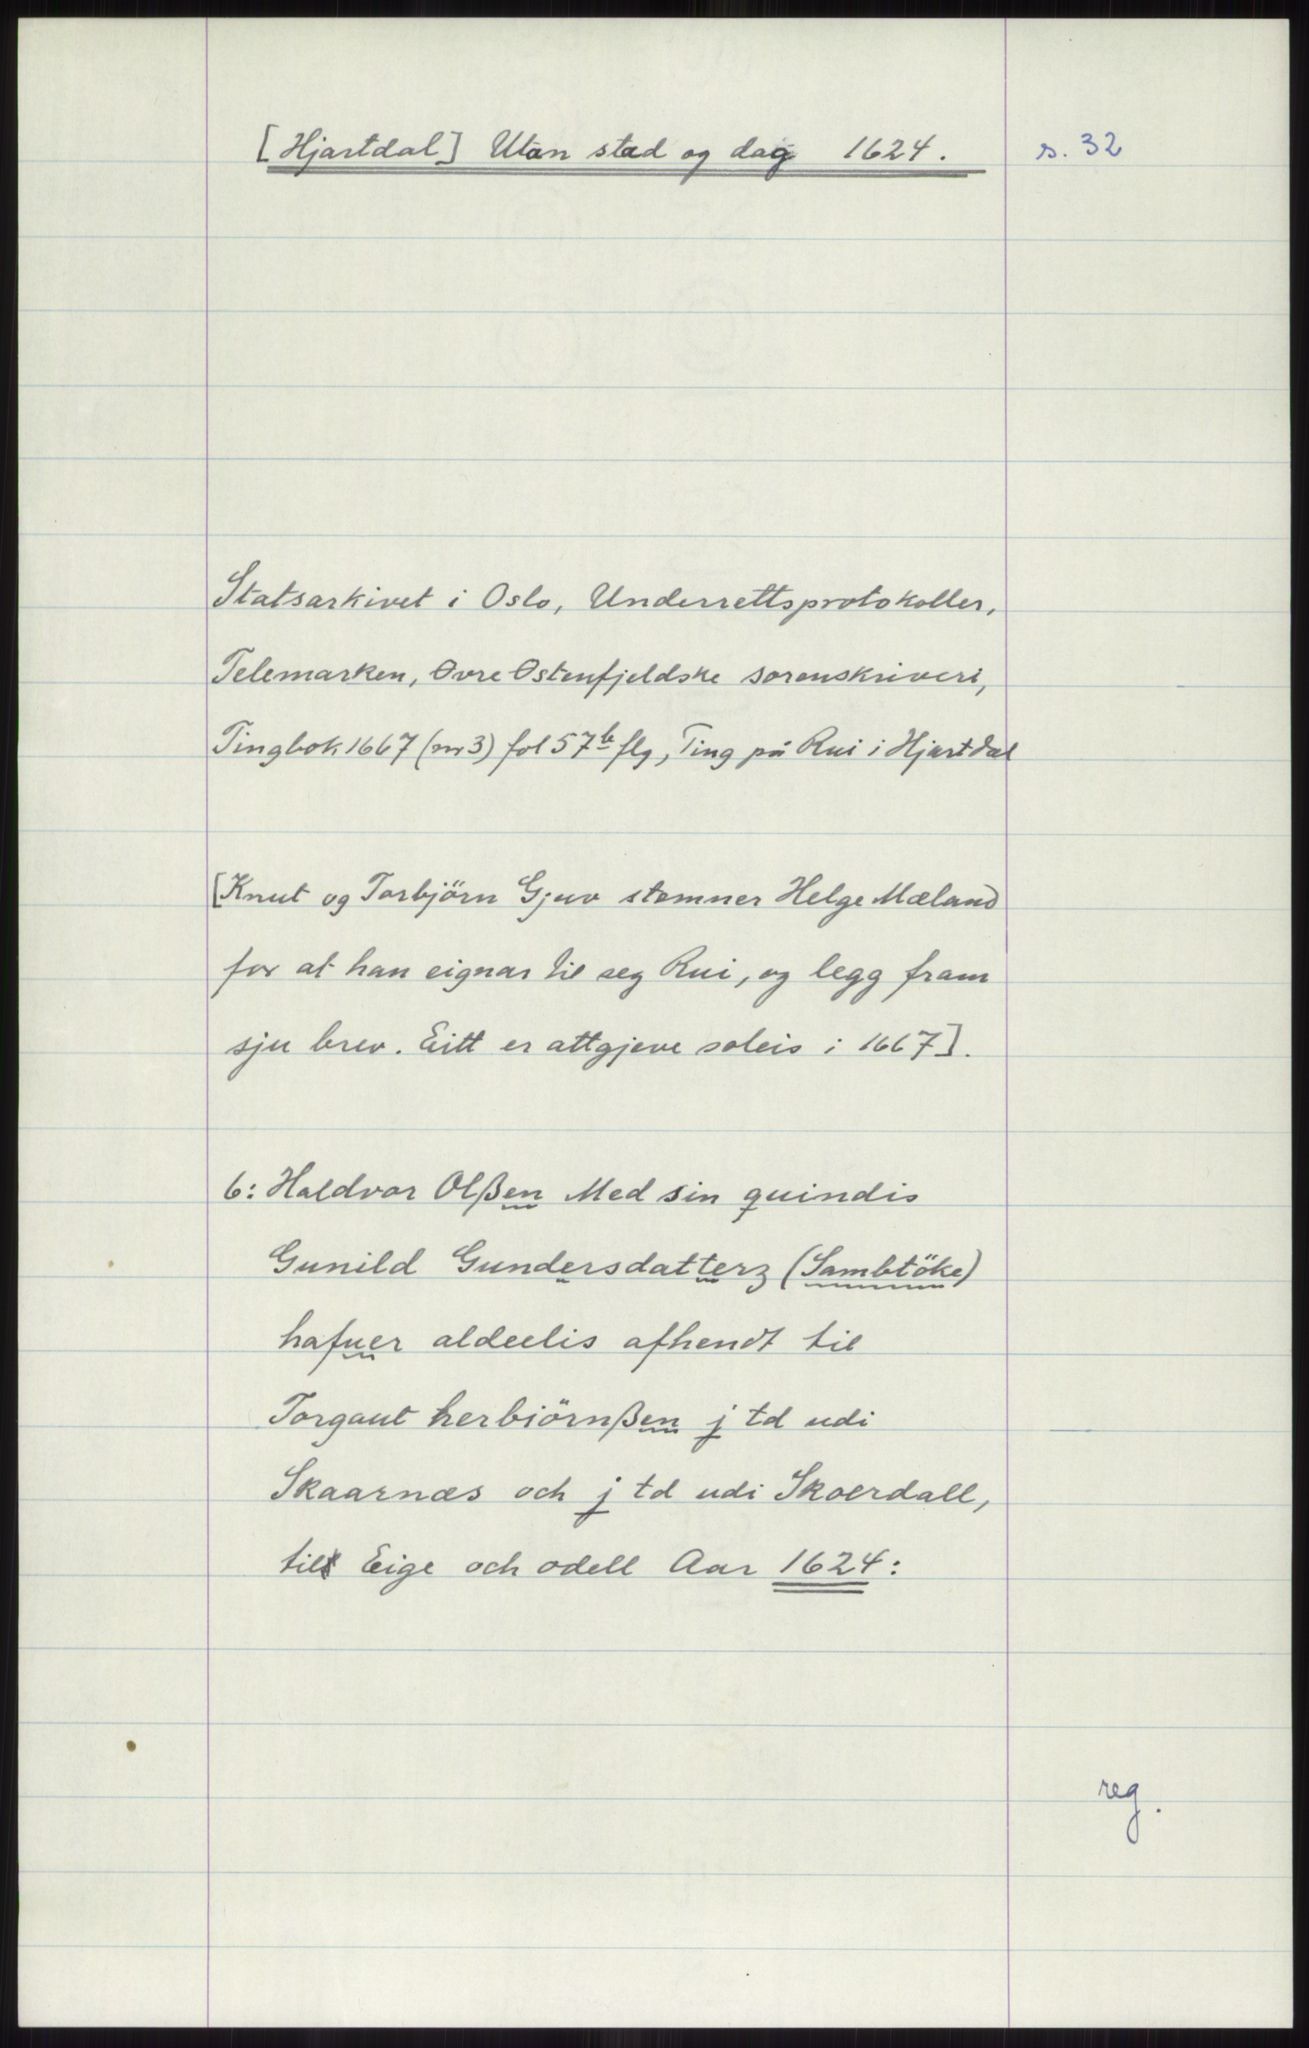 [Hjartdal] Utan stad og dag 1624. s. 32
Statsarkivet i Oslo, Underrettsprotokoller,
Telemarken, Øvre Østenfjeldske sorenskriveri,
Tingbok 1667 (nr 3) fol 57b flg, Ting på Rui i Hjartdal
[Knut og Torbjörn Gjuv stemner Helge Mæland
for at han eignar til seg Rui, og legg fram
sju brev. Eitt er attgjeve soleis i 1667].
6: Haldvor Olßen Med sin quindis
Gunild Gundersdatterz (Sambtöke)
hafuer aldeelis afhendt til
Torgaut herbiörnßen j td udi
Skaarnæs och j td udi Skoerdall,
till Eige och odell Aar 1624:
reg.